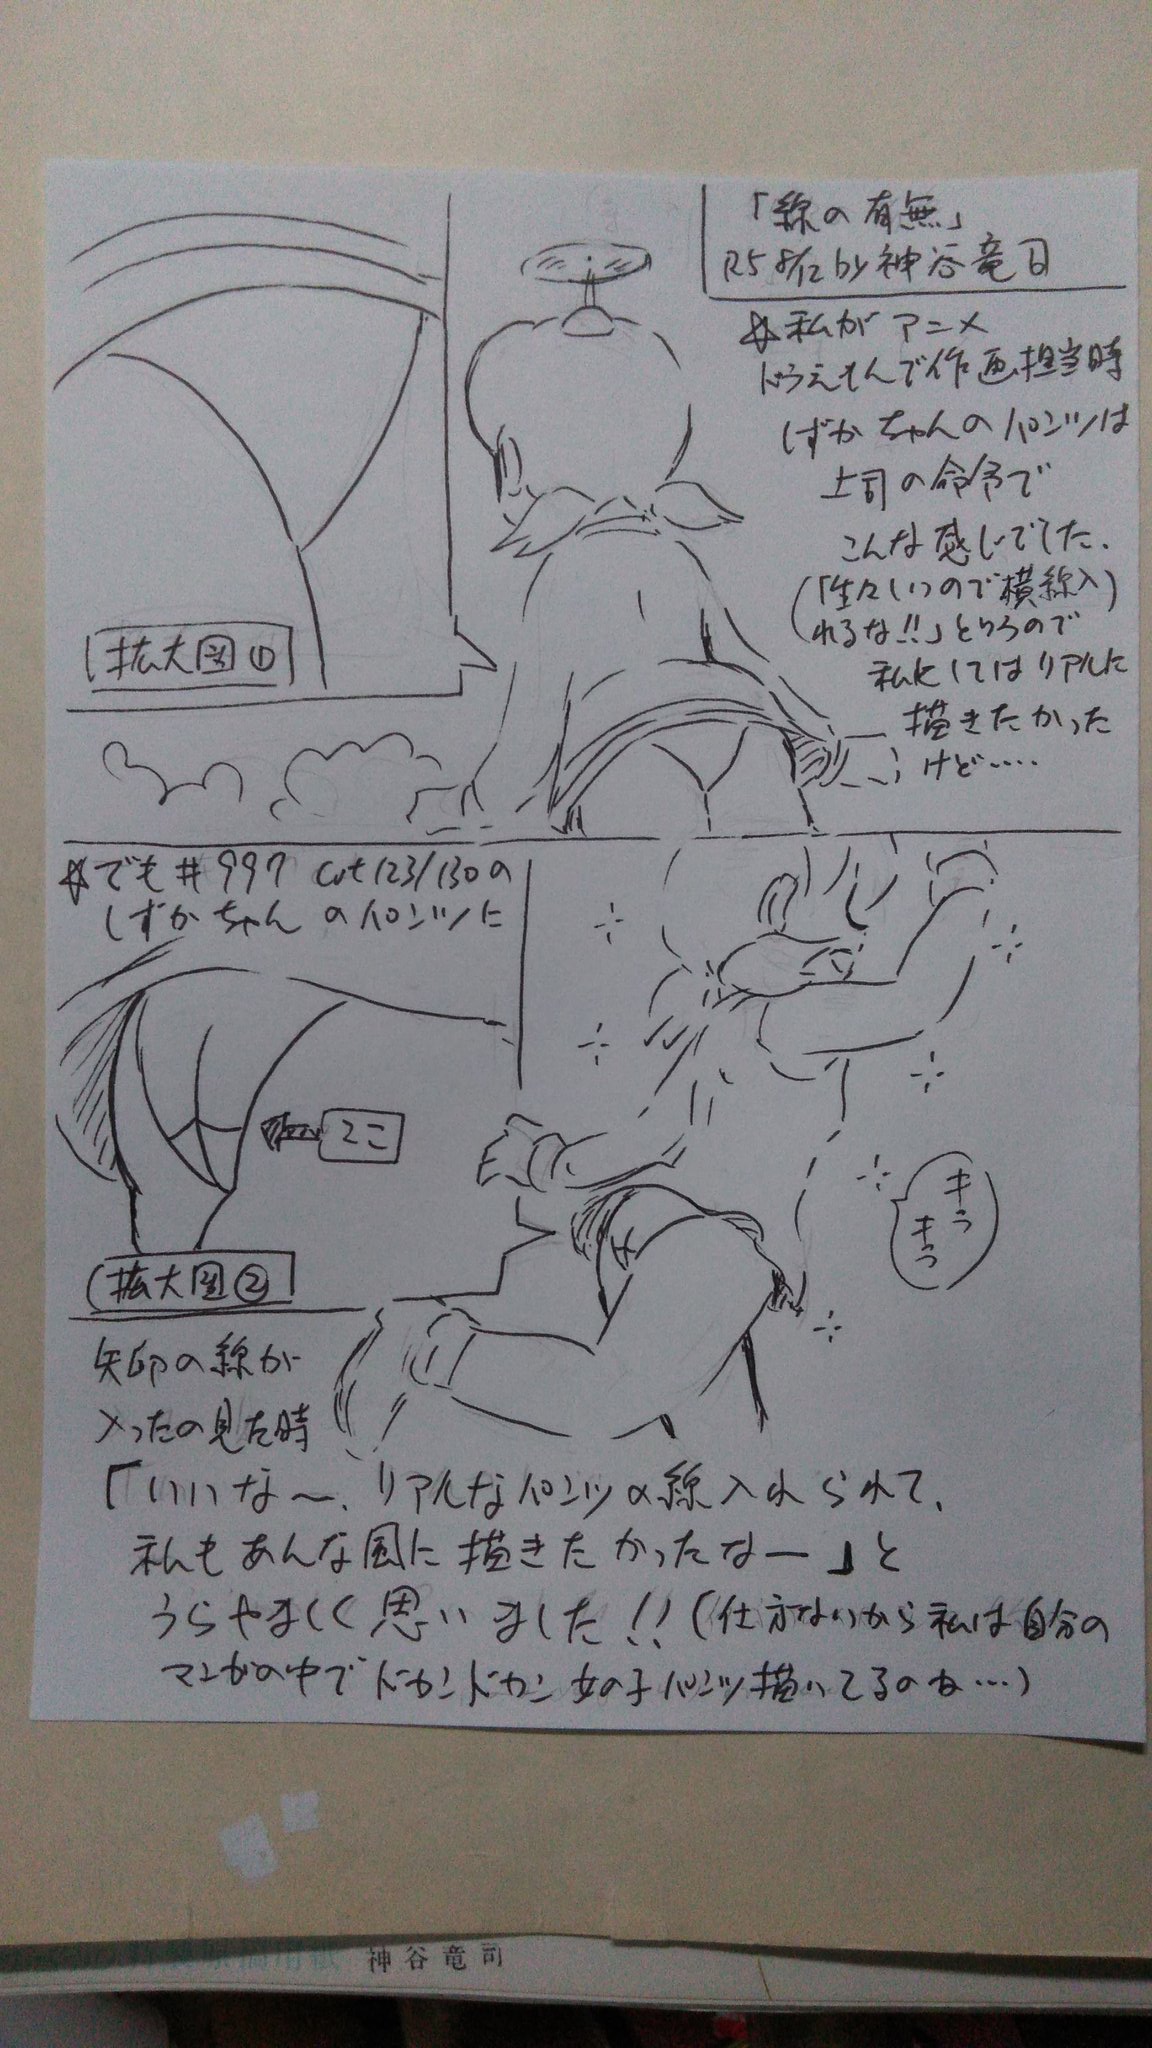 「線の有無」
R5 8/12 by 神谷竜日
☆私がアニメ
ドラえもんで作画担当時
しずかちゃんのパンツは
上司の命令で
こんな感じでした、
(「生々しいので横線入
れるな!!」というので
私としてはリアルに
描きたかった
けど‥‥
拡大図①
☆でも#997 cut123/130の
しずかちゃんのパンツに
ココ
拡大図②
キラ
キラ
矢印の線が
入ったの見た時
「いいな〜、リアルなパンツの線入れられて、
私もあんな風に描きたかったなー」と
うらやましく思いました!!(仕方ないから私は自分の
マンガの中でドカンドカン女の子パンツ描いてるのね…)
神谷竜司